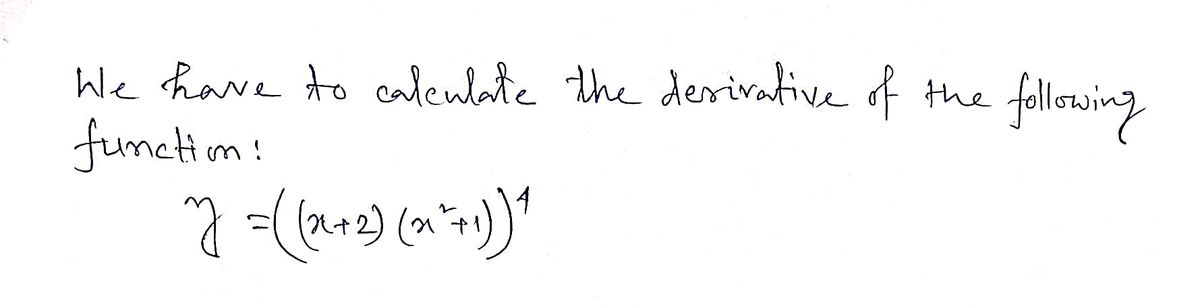 We have to calculate the derivative of the following
function:
y = ((x+2) (x²+1))⁴